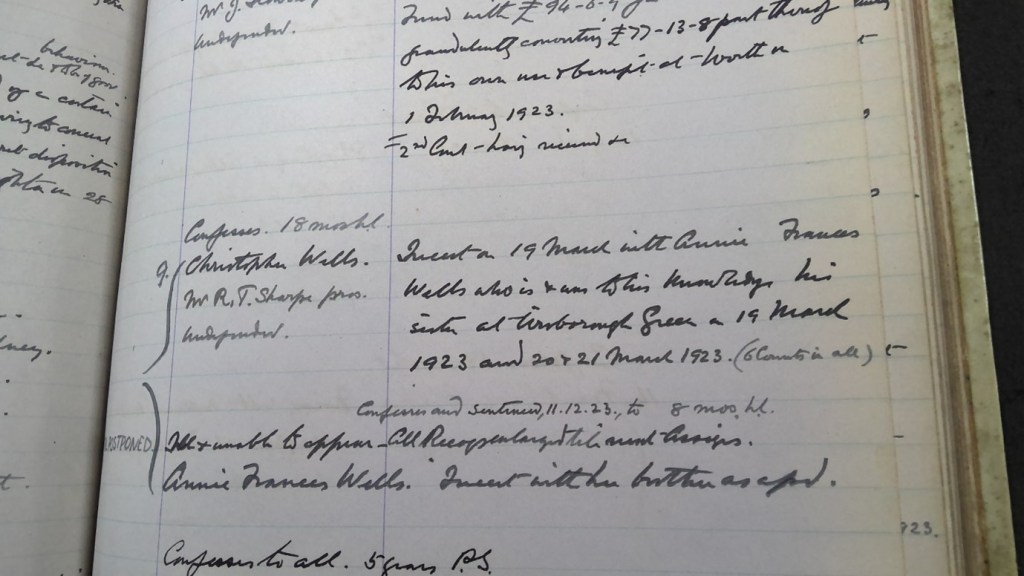 behaviour.
of a certain
disposition
28
Mr J.
undefended.
Fund with £94-6-9
fraudulently converting £77-13-8 part thereof
to his own use & benefit at Worth on
1 February 1923.
= 2nd Count - having received &c
Confesses. 18 mos hl.
9. Christopher Wells.
Mr R. T. Sharpe pros.
undefended.
Incest on 19 March with Annie Frances
Wells who is & was to his knowledge his
sister at Green on 19 March
1923 and 20 & 21 March 1923. (6 Counts in all)
Confesses and sentenced, 11.12.23., to 8 mos. hl.
POSTPONED
Ill & unable to appear - All Recogs enlarged till next Assizes.
Annie Frances Wells. Incest with her brother as afsd.
923.
Confesses to all. 5 years P.S.